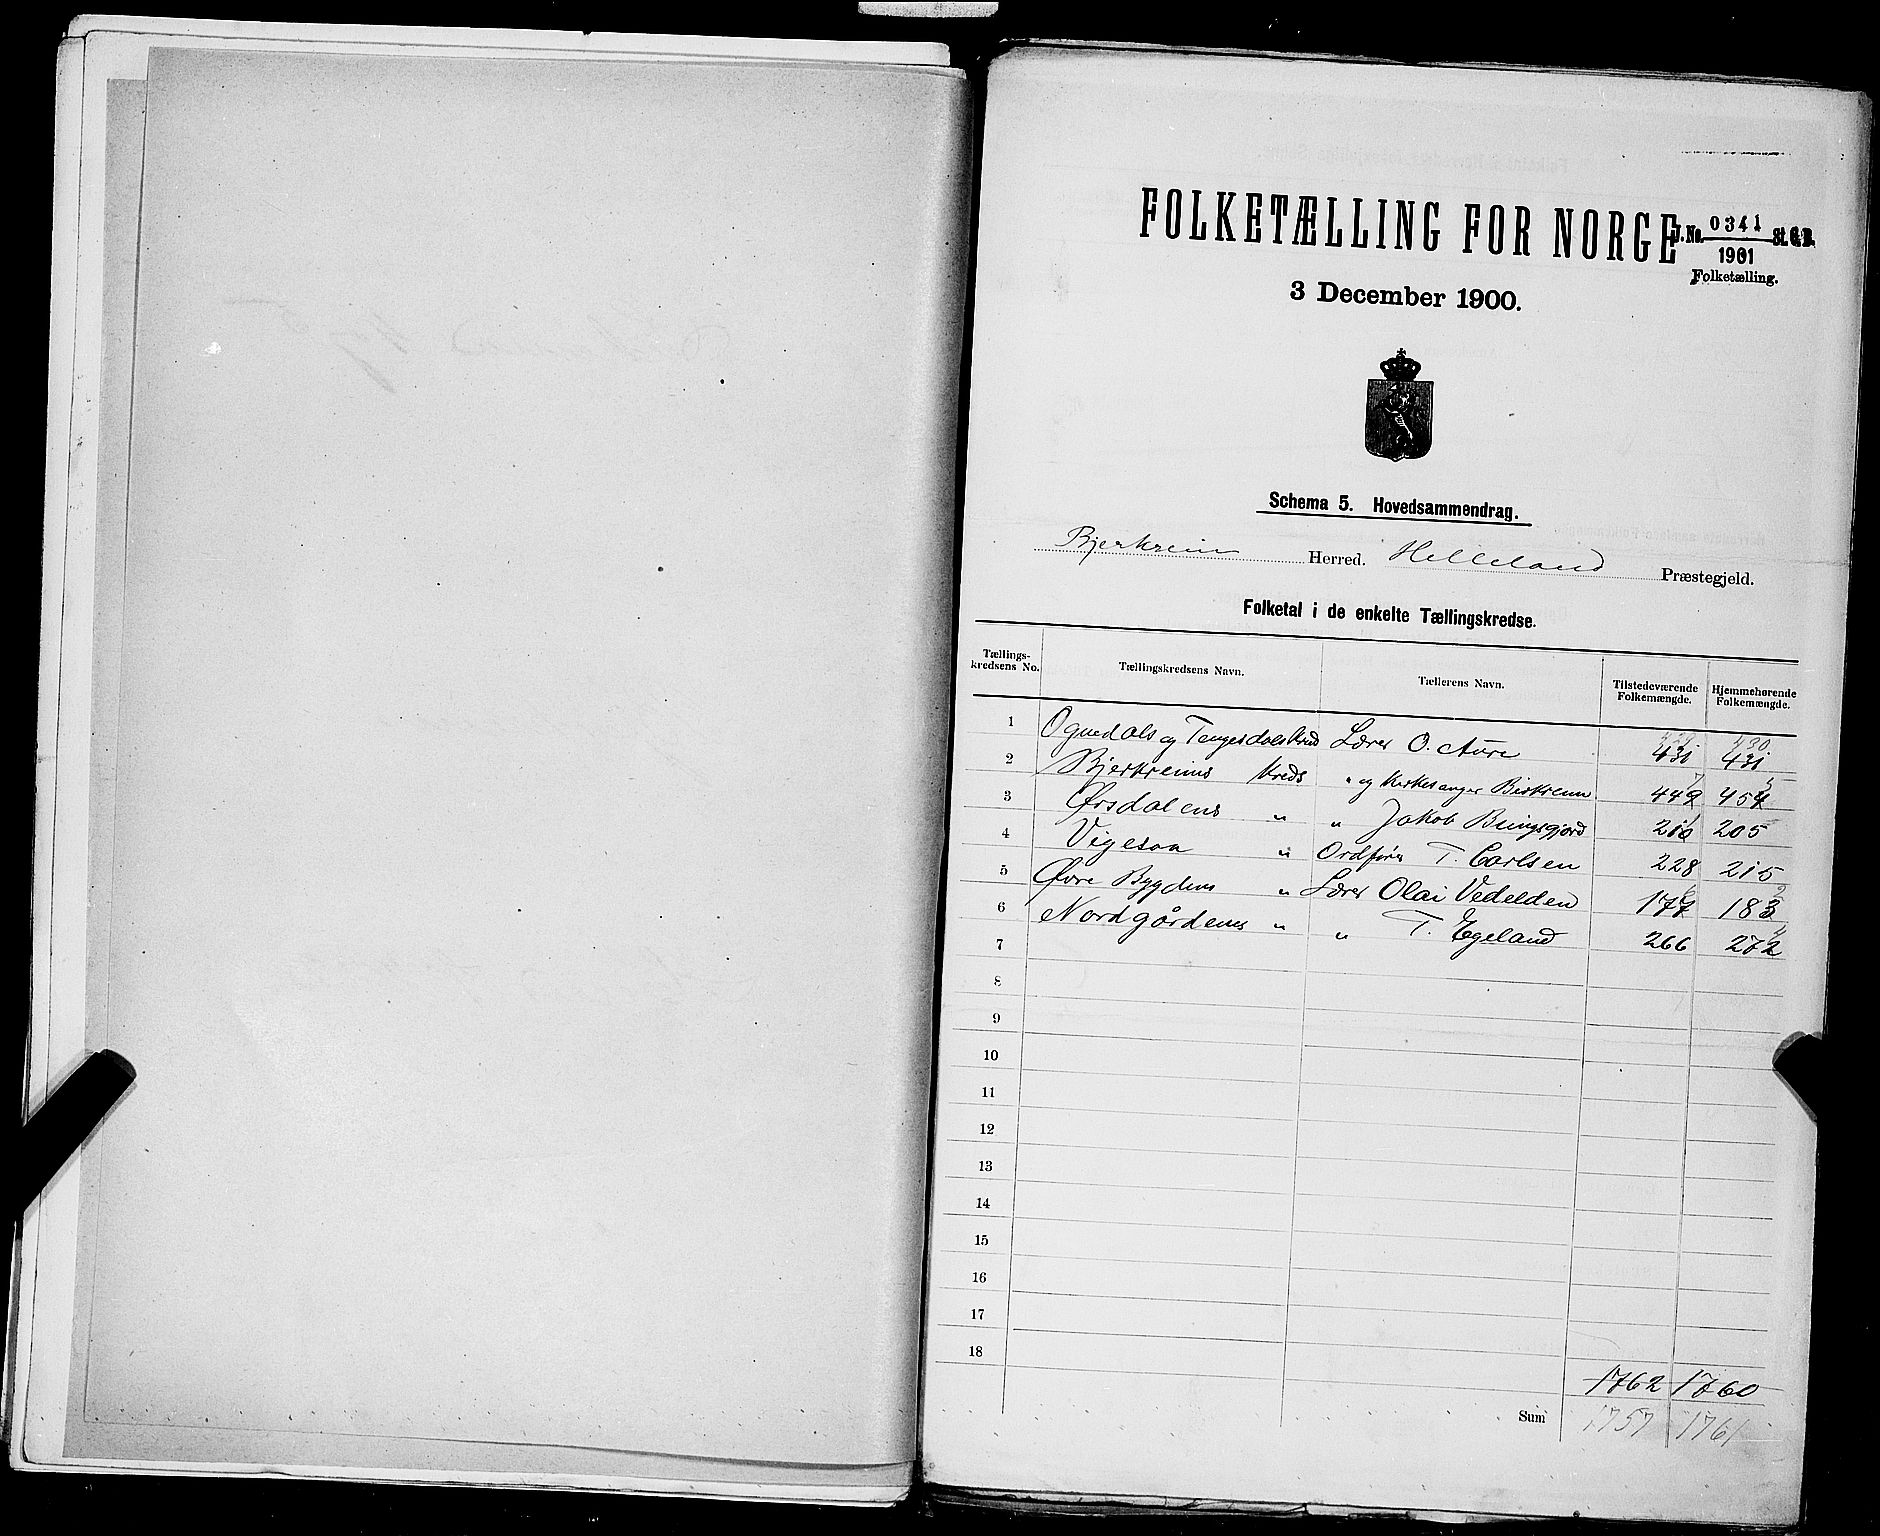 FOLKETÆLLING FOR NORGE
J. No. 0341 St. C. B.
1901
Folketælling.
3 December 1900.
Schema 5. Hovedsammendrag.
Bjerkreim Herred. Helleland Præstegjeld.
Folketal i de enkelte Tællingskredse.
Tællings-kredsens No. Tællingskredsens Navn. Tællerens Navn. Tilstedeværende Folkemængde. Hjemmehørende Folkemængde.
1 Ognedals og Tengesdalskreds Lærer O. Aure 431 431 430
2 Bjerkreims Kreds " og Kirkesanger Birkreim 449 454
3 Ørsdalens " " Jakob 210 205
4 Vigesaa " Ordfører T. Carlsen 228 215
5 Øvre Bygdens " Lærer Olai Vedelden 177 183
6 Nordgårdenes " " T. Egeland 266 272
7
8
9
10
11
12
13
14
15
16
17
18
1762 1760
Sum 1757 1761